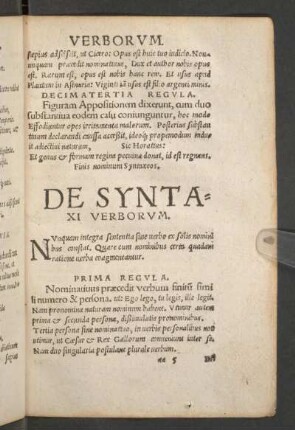 VERBORVM.
sæpius adsciscit, ut Cicero: Opus est huic tuo indicio. Non-
nunquam præcedit nominatiuus, Dux et author nobis opus
est. Rarum est, opus est nobis hanc rem. Et usus apud
Plautum in Asinaria: Viginti iã usus est filio argenti minis.
DECIMATERTIA REGVLA.
Figuram Appositionem dixerunt, cum duo
substantiua eodem casu coniunguntur, hoc modo
Effodiuntur opes irritamenta malorum. Posterius substan
tiuum declarandi causa accersit, ideoq́; propemodum induit
adiectiui naturam, Sic Horatius:
Et genus & formam regina pecunia donat, id est regnans.
Finis nominum Syntaxeos.
DE SYNTA-
XI VERBORVM.
NVnquam integra sententia sine uerbo ex solis nomini
bus constat. Quare cum nominibus certa quadam
ratione uerba coagmentantur.
PRIMA REGVLA.
Nominatiuus præcedit Verbum finitũ simi
li numero & persona, ut: Ego lego, tu legis, ille legit.
Nam pronomina naturam nominum habent. Vtimur autem
prima & secunda persona, dissimulatis pronominibus.
Tertia persona sine nominatiuo, in uerbis personalibus non
utimur, ut Cæsar & Rex Gallorum conueniunt inter se.
Nam duo singularia postulant plurale uerbum.
5